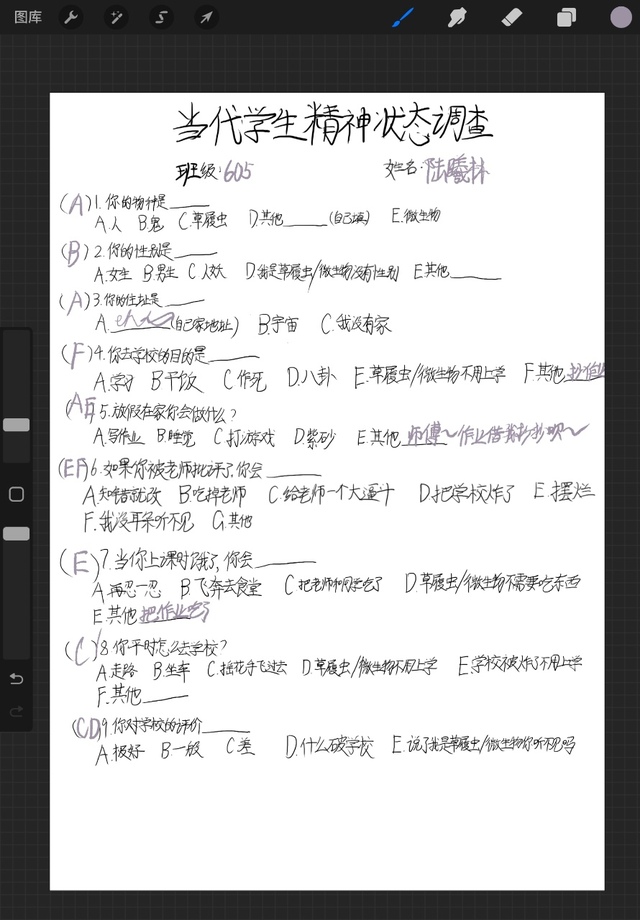 图库
当代学生精神状态调查
班级:605 姓名:陆曦林
(A)1.你的物种是____
A.人 B.鬼 C.草履虫 D.其他____(自己填) E.微生物
(B)2.你的性别是____
A.女生 B.男生 C.人妖 D.我是草履虫/微生物没有性别 E.其他____
(A)3.你的住址是____
A.____(自己家地址) B.宇宙 C.我没有家
(F)4.你去学校的目的是____
A.学习 B.干饭 C.作死 D.八卦 E.草履虫/微生物不用上学 F.其他 抄作业
(AE)5.放假在家你会做什么?
A.写作业 B.睡觉 C.打游戏 D.紫砂 E.其他 师傅~作业借我抄抄呗~
(EF)6.如果你被老师批评了,你会____
A.知错就改 B.吃掉老师 C.给老师一个大逼斗 D.把学校炸了 E.摆烂
F.我没耳朵听不见 G.其他
(E)7.当你上课时饿了,你会____
A.再忍一忍 B.飞奔去食堂 C.把老师和同学吃了 D.草履虫/微生物不需要吃东西
E.其他 把作业吃了
(C)8.你平时怎么去学校?
A.走路 B.坐车 C.扭花手飞过去 D.草履虫/微生物不用上学 E.学校被炸了不用上学
F.其他____
(CD)9.你对学校的评价____
A.极好 B.一般 C.差 D.什么破学校 E.说了我是草履虫/微生物你听不见吗